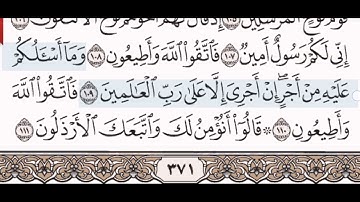 إِنِّي لَكُمْ رَسُولٌ أَمِينٌ ١٠٧ فَاتَّقُوا اللَّهَ وَأَطِيعُونِ ١٠٨ وَمَا أَسْـَٔلُكُمْ
عَلَيْهِ مِنْ أَجْرٍ إِنْ أَجْرِيَ إِلَّا عَلَىٰ رَبِّ الْعَالَمِينَ ١٠٩ فَاتَّقُوا اللَّهَ
وَأَطِيعُونِ ١١٠ ۞ قَالُوا أَنُؤْمِنُ لَكَ وَاتَّبَعَكَ الْأَرْذَلُونَ ١١١
٣٧١